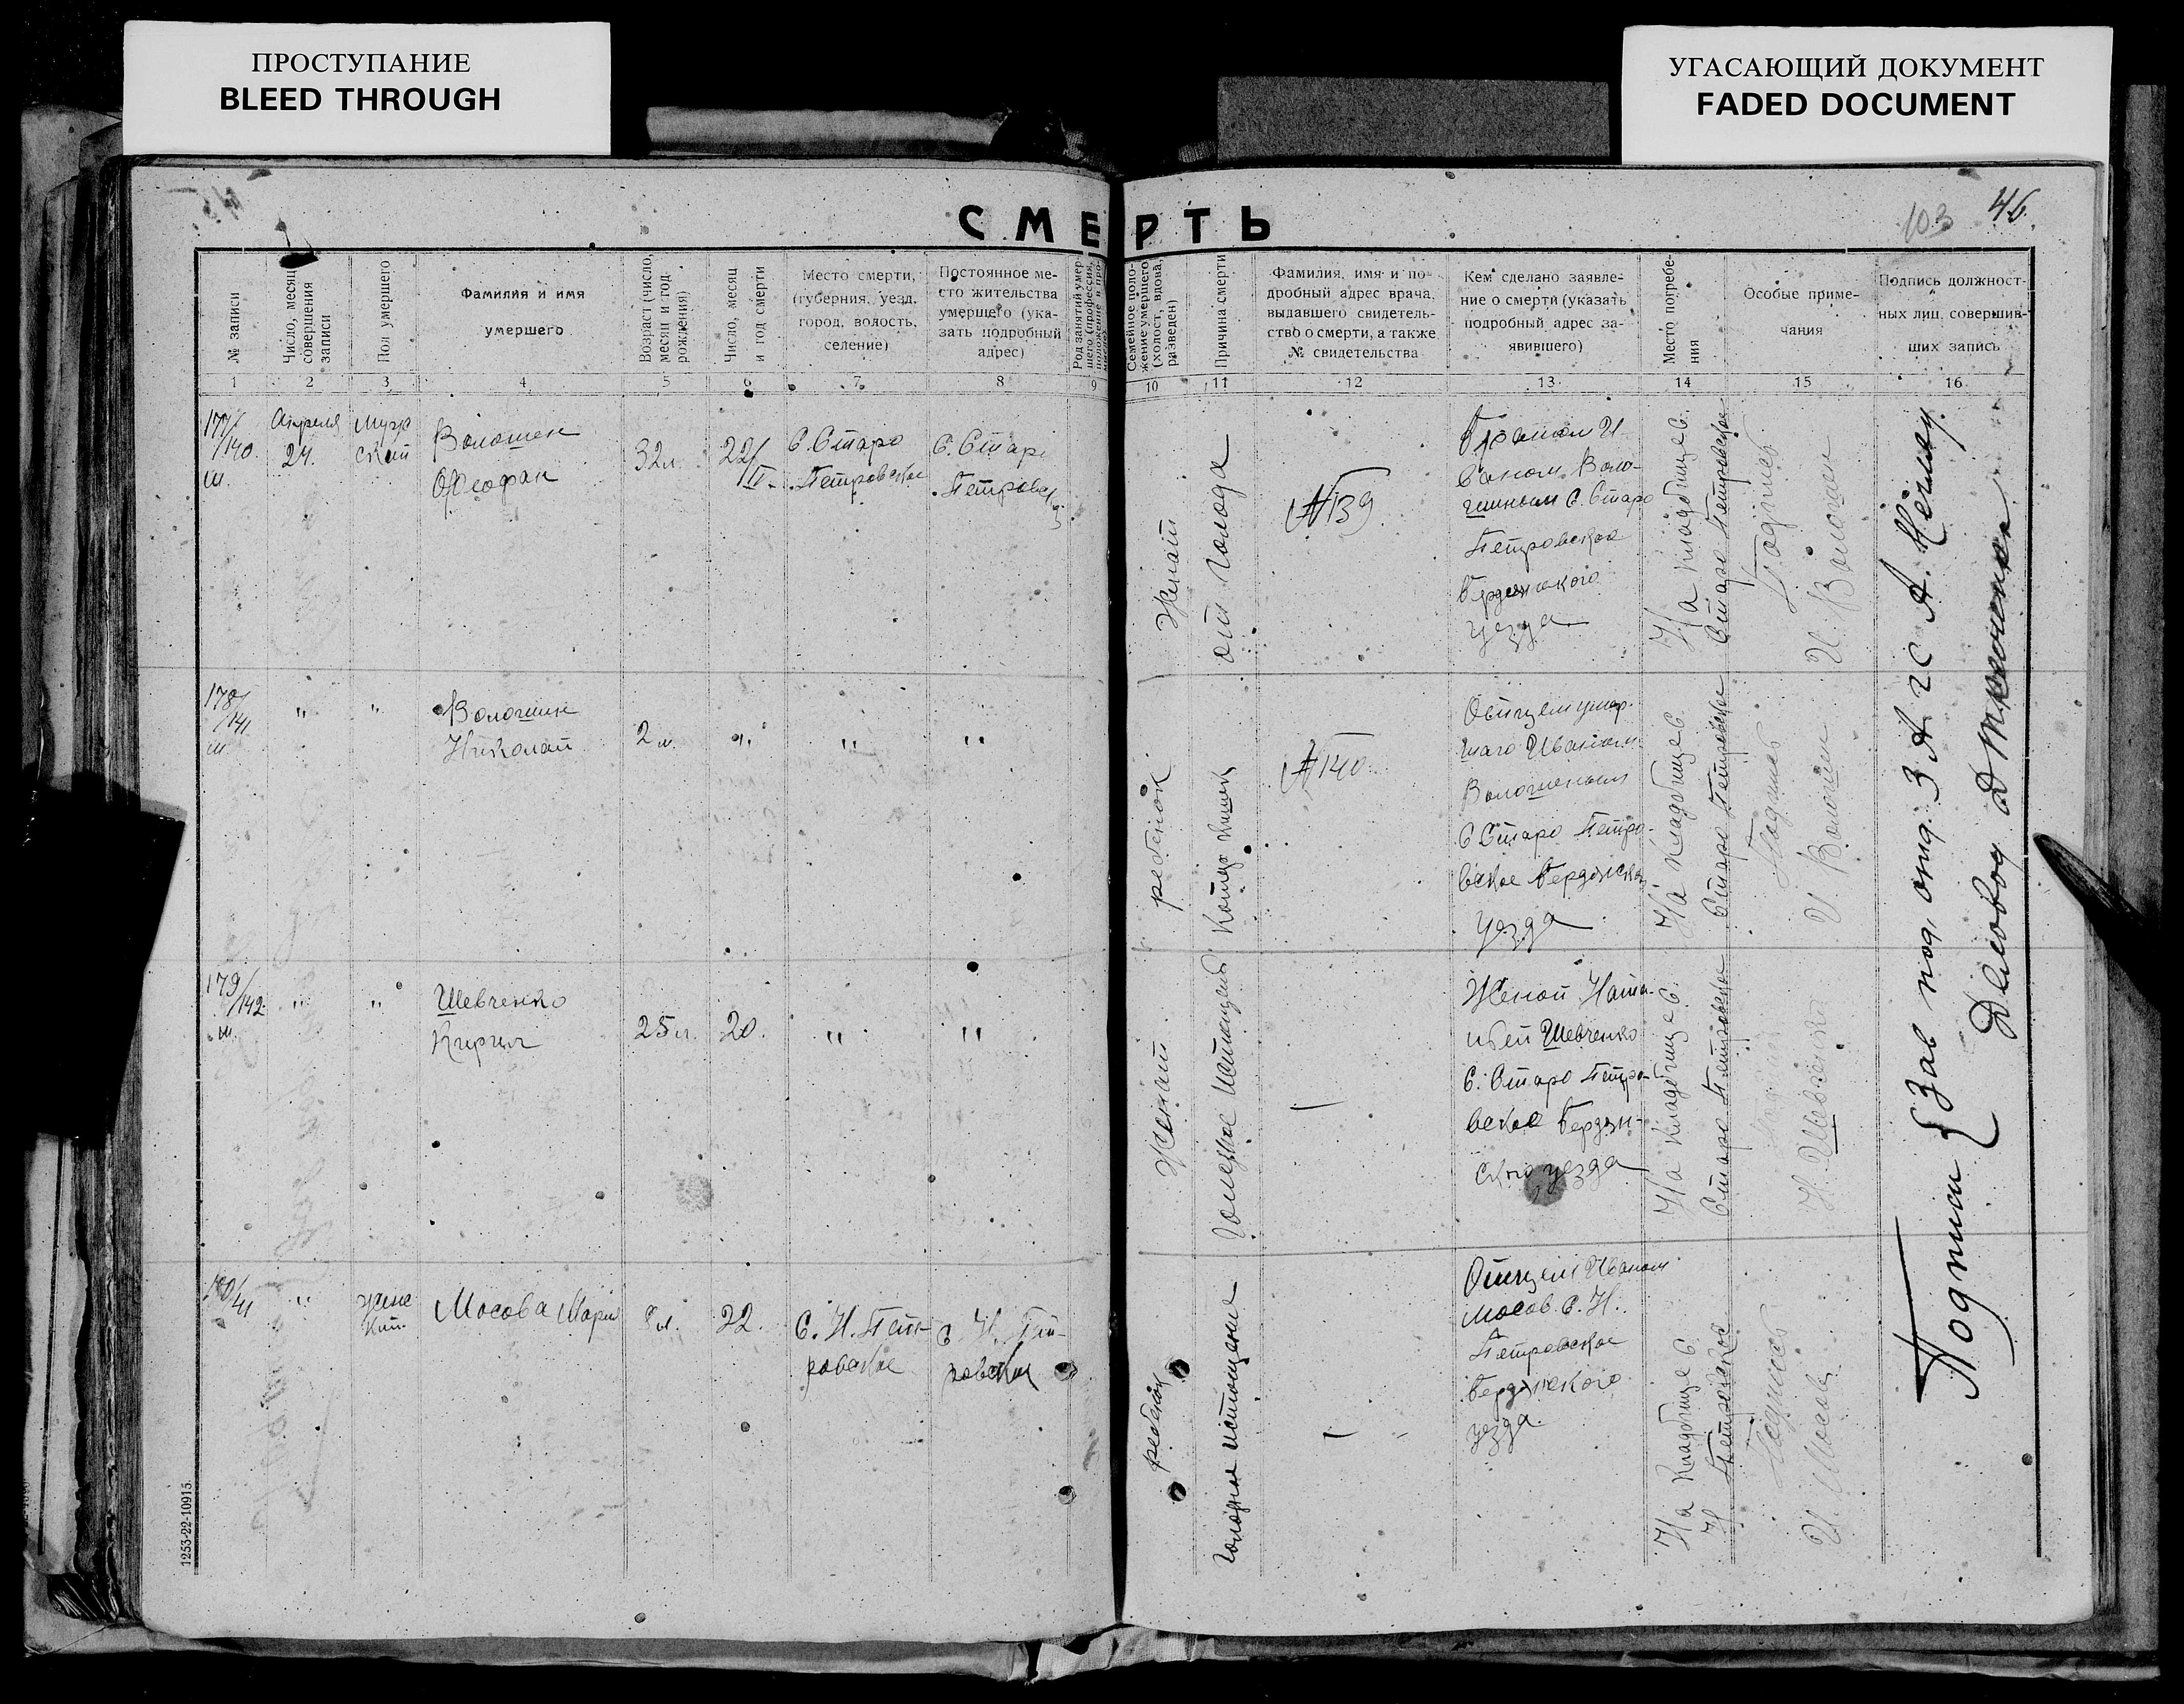 ПРОСТУПАНИЕ
BLEED THROUGH
УГАСАЮЩИЙ ДОКУМЕНТ
FADED DOCUMENT
103 46.
СМЕРТЬ
№ записи
Число, месяц
совершения
записи
Пол умершего
Фамилия и имя
умершего
Возраст (число,
месяц и год
рождения)
Число, месяц
и год смерти
Место смерти,
(губерния, уезд,
город, волость,
селение)
Постоянное ме-
сто жительства
умершего (ука-
зать подробный
адрес)
Род занятий умер-
шего (профессия,
положение в про-
Семейное поло-
жение умершего
(холост, вдова,
разведен)
Причина смерти
Фамилия, имя и по-
дробный адрес врача,
выдавшего свидетель-
ство о смерти, а также
№ свидетельства
Кем сделано заявле-
ние о смерти (указать
подробный адрес за-
явившего)
Место погребе-
ния
Особые приме-
чания
Подпись должност-
ных лиц, совершив-
ших запись
1 2 3 4 5 6 7 8 9 10 11 12 13 14 15 16
177/
/140
м.
Апреля
24.
Муж
ской
Волошен
Феофан
32 л.
22/
IV.
С. Старо
Петровское
С. Старо
Петровск
Женат
от голода
№139
Братом И
ваном Воло-
шиным С. Старо
Петровское
Бердянского
уезда
На кладбище С.
Старо Петровское
Подпись
И. Волошен
178/
/141
м
"
"
Волошин
Николай
2 м.
"
"
"
ребенок
Катар кишек
№140
Отцем умер-
шаго Иваном
Волошеным
С Старо Петро-
вское Бердянско
уезда
На кладбище С.
Старо Петровское
Подпись
И. Волошин
179/
/142
м.
"
"
Шевченко
Кирил
25 л.
20.
"
"
Женат
Голодное истощение
—
Женой Ната-
лией Шевченко
С. Старо Петро-
вское Бердян-
ского уезда
На кладбище С.
Старо Петровское
Н. Шевченко
"
женс
кий
Мосова Мария
8 л.
22.
С. Н. Пет-
ровское
С Н. Пет-
ровское
ребенок
Голодное истощение
—
Отцем Иваном
Мосов С. Н.
Петровское
Бердянского
уезда.
На кладбище С.
Н Петровское
Подпись
И. Мосов
Подписи { Зав под отд. ЗАГС А.
Деловод
1253-22-10915